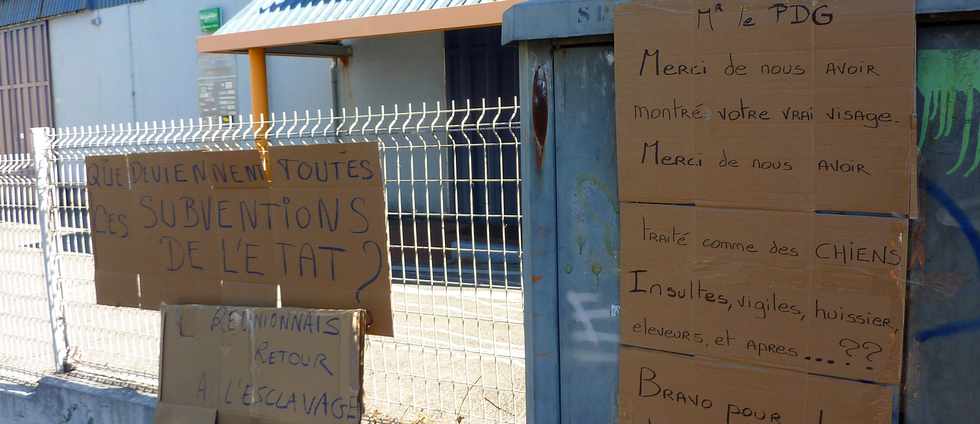 QUE DEVIENNENT TOUTES
LES SUBVENTIONS
DE L'ETAT ?
REUNIONNAIS
RETOUR
A L'ESCLAVAGE
Mr le PDG
Merci de nous avoir
montré votre vrai visage.
Merci de nous avoir
traité comme des CHIENS
Insultes, vigiles, huissier,
eleveurs, et apres....??
Bravo pour